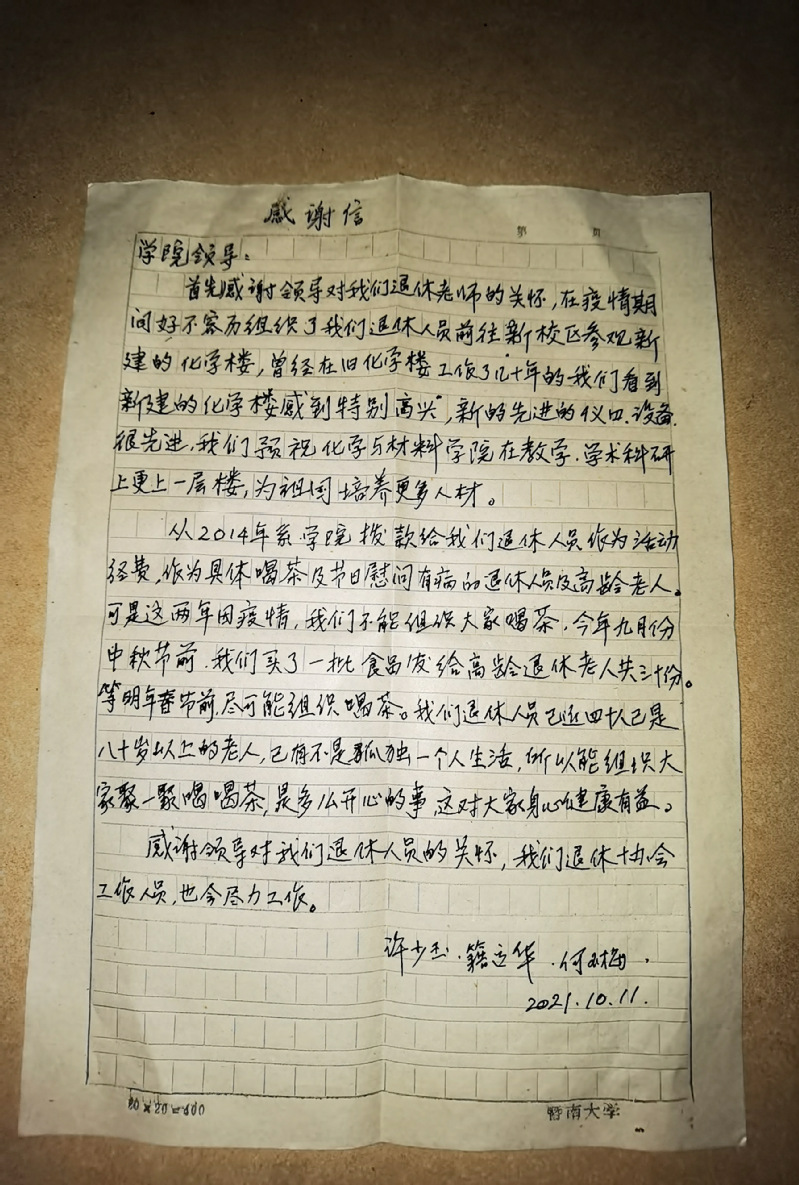 感谢信
第 页
学院领导：
首先感谢领导对我们退休老师的关怀，在疫情期
间好不容易组织了我们退休人员前往新校区参观新
建的化学楼，曾经在旧化学楼工作了几十年的我们看到
新建的化学楼感到特别高兴，新的先进的仪口、设备
很先进，我们预祝化学与材料学院在教学、学术科研
上更上一层楼，为祖国培养更多人材。
从2014年系学院拨款给我们退休人员作为活动
经费，作为具体喝茶及节日慰问有病的退休人员及高龄老人。
可是这两年因疫情，我们不能组织大家喝茶，今年九月份
中秋节前，我们买了一批食品发给高龄退休老人共三十份。
等明年春节前，尽可能组织喝茶。我们退休人员已近四十人已是
八十岁以上的老人，已有不是孤独一个人生活，所以能组织大
家聚一聚喝喝茶，是多么开心的事，这对大家身心健康有益。
感谢领导对我们退休人员的关怀，我们退休协会
工作人员，也会尽力工作。
许少玉、籍立华、何
2021.10.11.
暨南大学